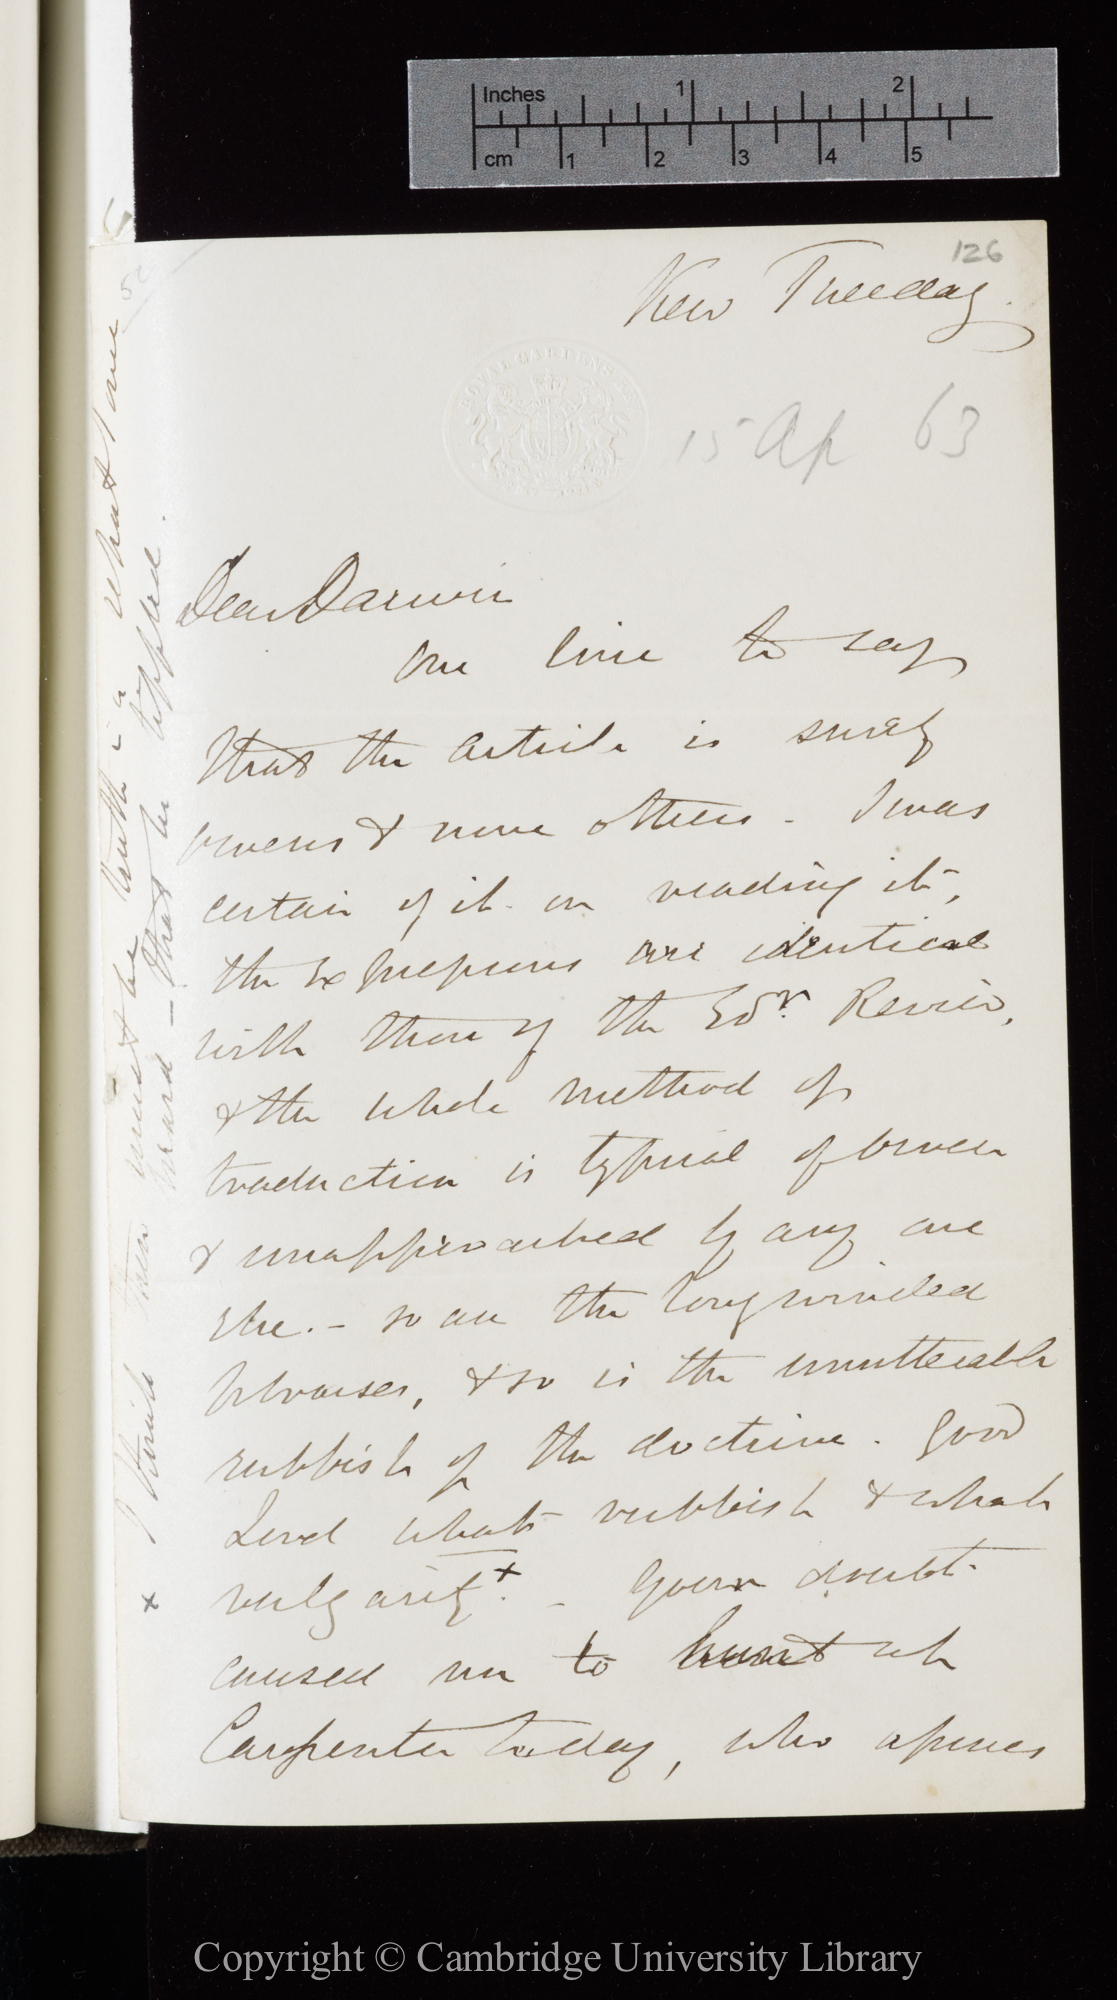 Inches 1 2
cm 1 2 3 4 5
126
Kew Tuesday.
ROYAL GARDENS KEW
15 Ap 63
Dear Darwin
One line to say
that the Article is surely
Owens & none others. I was
certain of it on reading it,
the expressions are identical
with those of the Edr. Review,
& the whole method of
traduction is typical of Owen
& unapproached by any one
else. – so are the longwinded
phrases, & so is the unutterable
rubbish of the doctrine. Good
Lord what rubbish & what
vulgarity.+ – Your doubt
caused me to hunt up
Carpenter today, who agrees
+ I think there must be truth in what I once
heard – that he tippled.
Copyright © Cambridge University Library